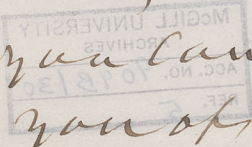 McGILL UNIVERSITY
ARCHIVES
ACC. NO.
REF.
you can
you of